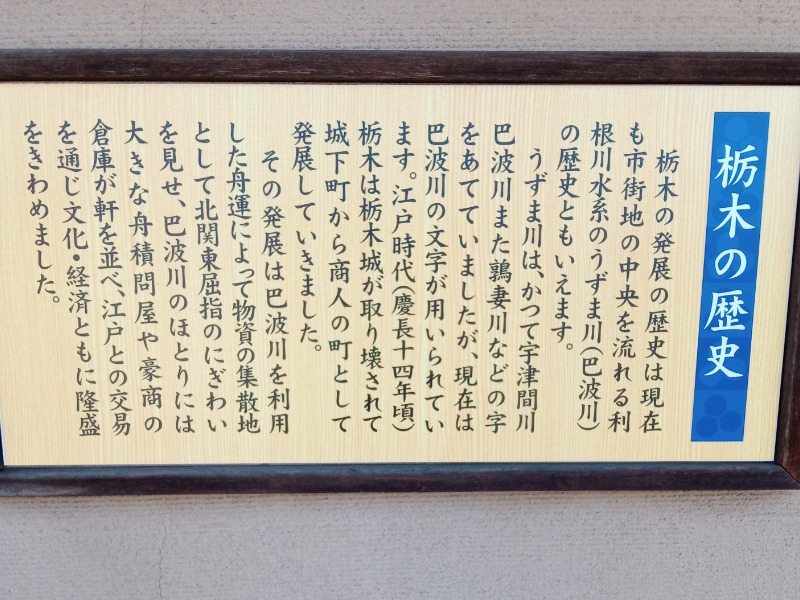 栃木の歴史
栃木の発展の歴史は現在
も市街地の中央を流れる利
根川水系のうずま川(巴波川)
の歴史ともいえます。
うずま川は、かつて宇津間川
巴波川また鶉妻川などの字
をあてていましたが、現在は
巴波川の文字が用いられてい
ます。江戸時代(慶長十四年頃)
栃木は栃木城が取り壊されて
城下町から商人の町として
発展していきました。
その発展は巴波川を利用
した舟運によって物資の集散地
として北関東屈指のにぎわい
を見せ、巴波川のほとりには
大きな舟積問屋や豪商の
倉庫が軒を並べ、江戸との交易
を通じ文化・経済ともに隆盛
をきわめました。